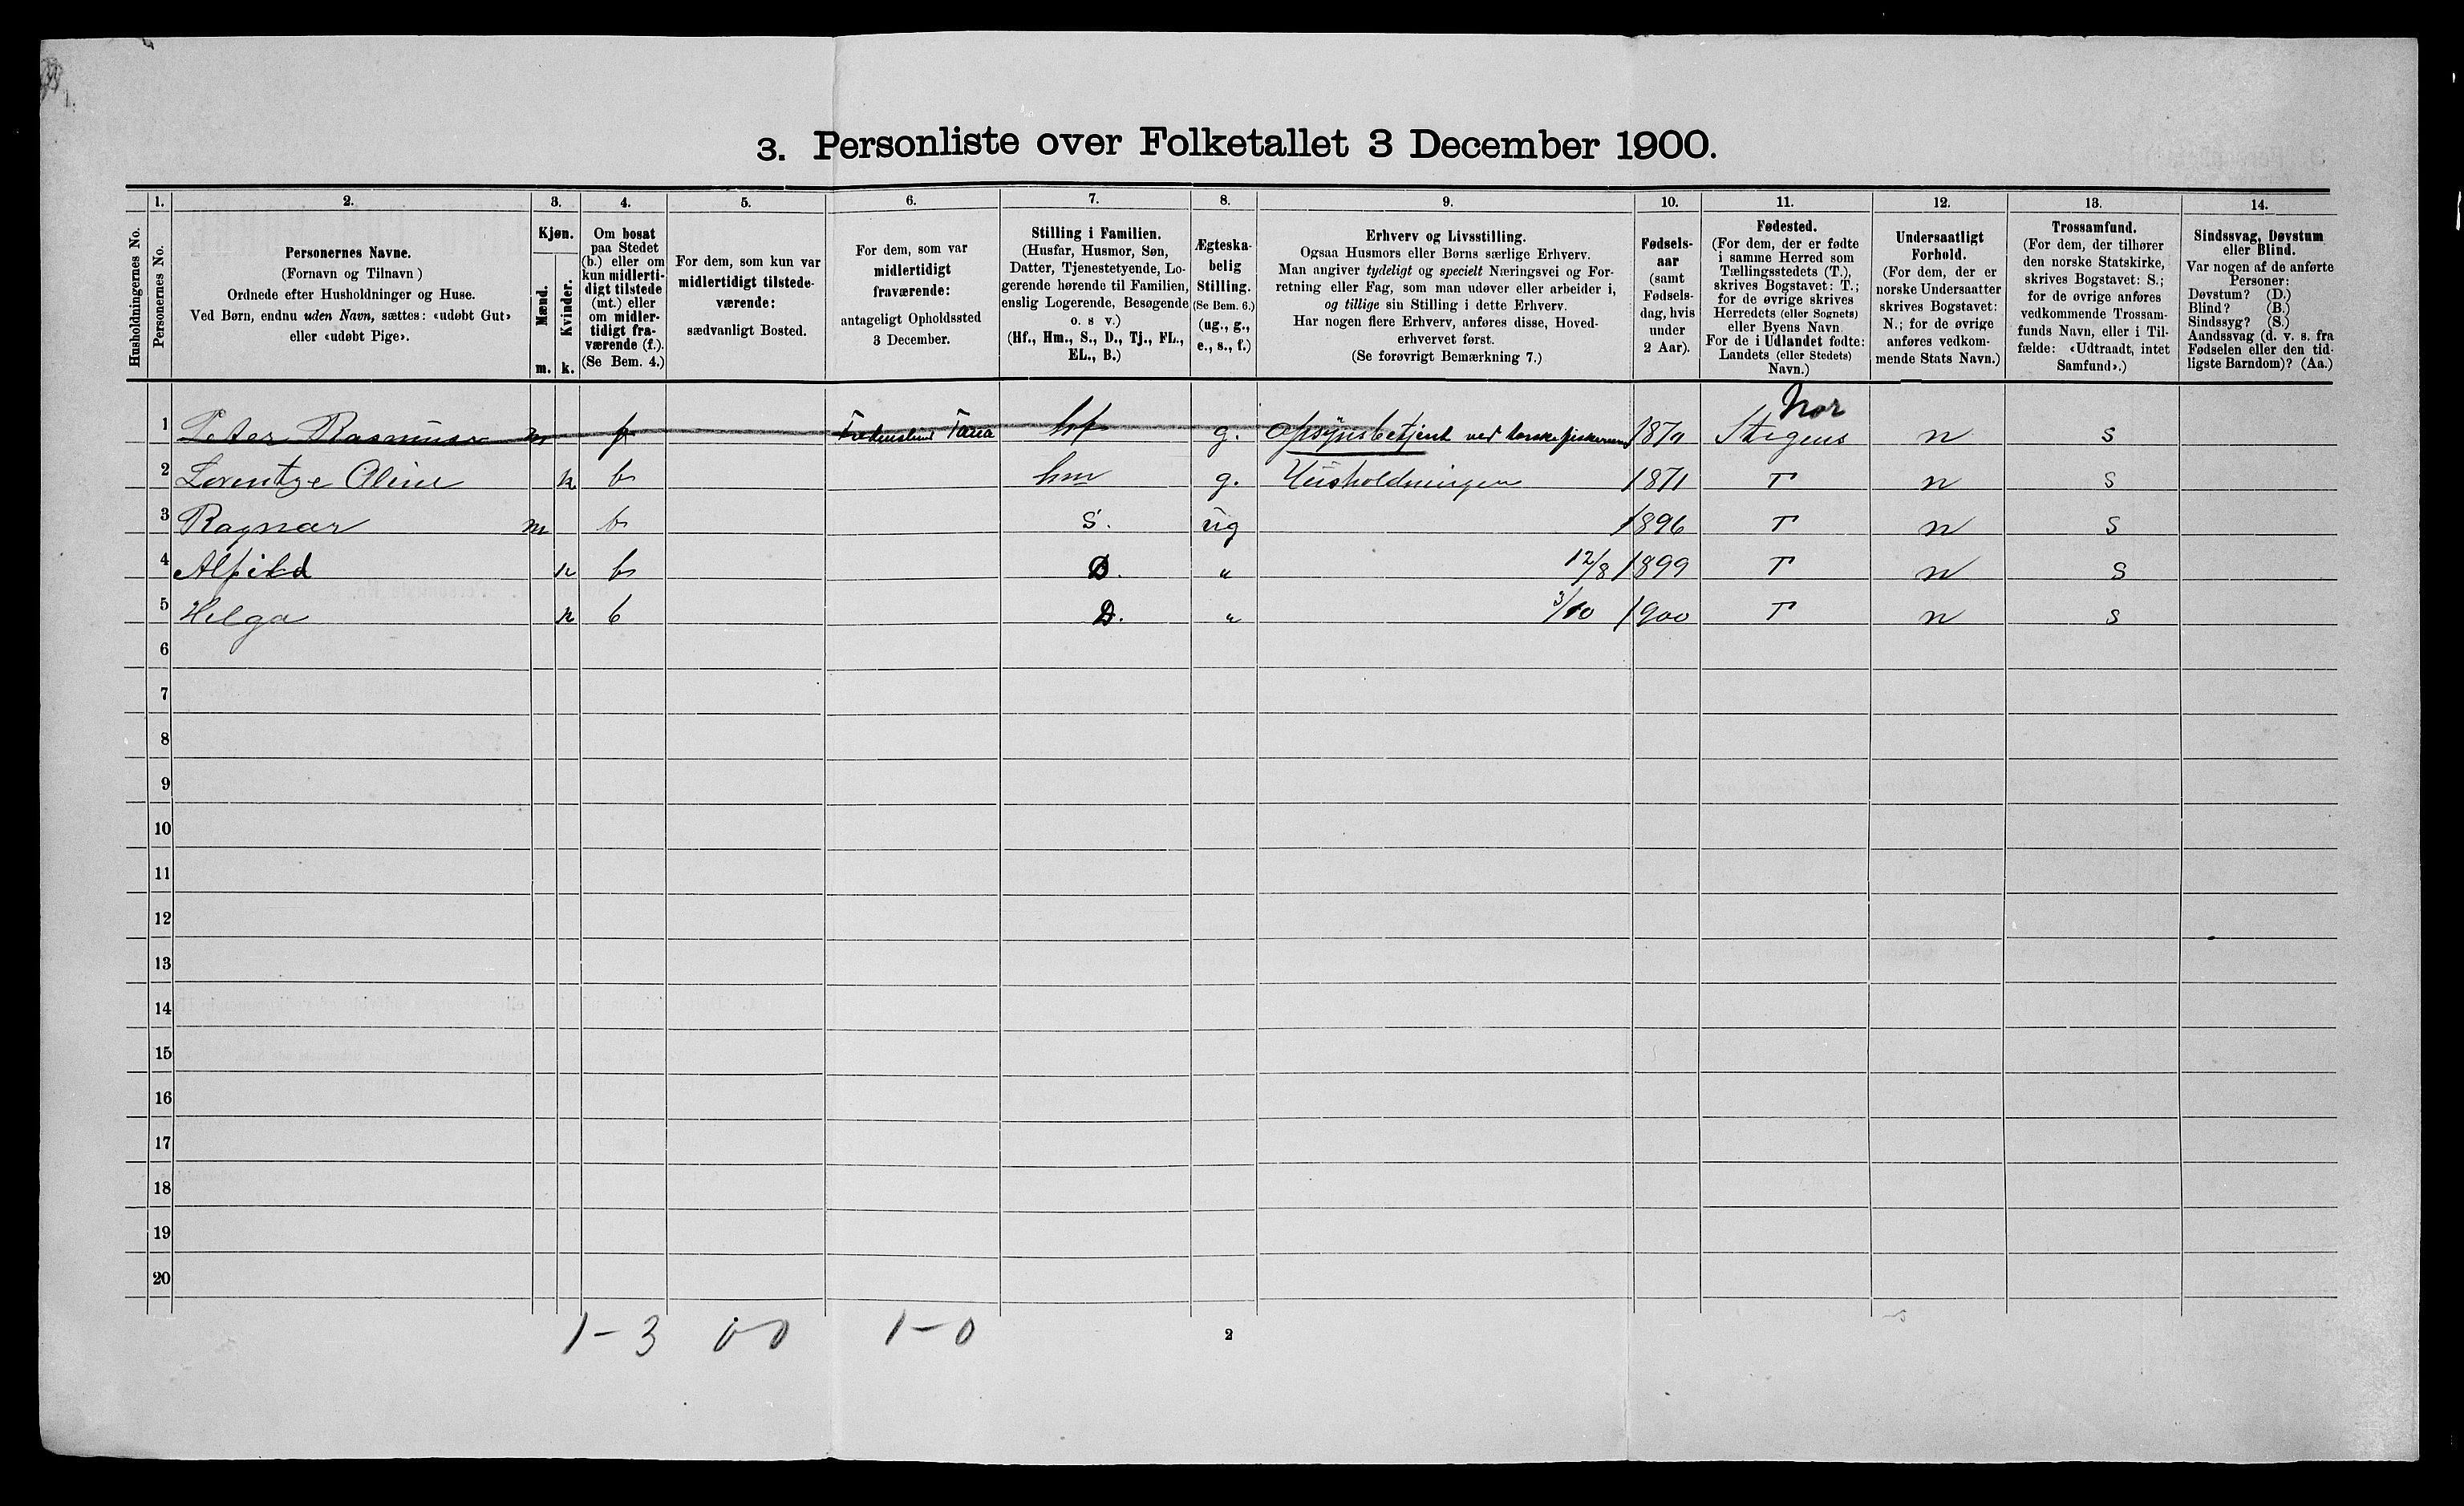 3. Personliste over Folketallet 3 December 1900.
Husholdningernes No.
1. Personernes No.
2. Personernes Navne.
(Fornavn og Tilnavn)
Ordnede efter Husholdninger og Huse.
Ved Børn, endnu uden Navn, sættes: «udøbt Gut»
eller «udøbt Pige».
3. Kjøn.
Mænd. Kvinder.
m. k.
4. Om bosat
paa Stedet
(b.) eller om
kun midlerti-
digt tilstede
(mt.) eller
om midler-
tidigt fra-
værende (f.).
(Se Bem. 4.)
5. For dem, som kun var
midlertidigt tilstede-
værende:
sædvanligt Bosted.
6. For dem, som var
midlertidigt
fraværende:
antageligt Opholdssted
3 December.
7. Stilling i Familien.
(Husfar, Husmor, Søn,
Datter, Tjenestetyende, Lo-
gerende hørende til Familien,
enslig Logerende, Besøgende
o. s v.)
(Hf., Hm., S., D., Tj., FL.,
EL., B.)
8. Ægteska-
belig
Stilling.
(Se Bem. 6.)
(ug., g.,
e., s., f.)
9. Erhverv og Livsstilling.
Ogsaa Husmors eller Børns særlige Erhverv.
Man angiver tydeligt og specielt Næringsvei og For-
retning eller Fag, som man udøver eller arbeider i,
og tillige sin Stilling i dette Erhverv.
Har nogen flere Erhverv, anføres disse, Hoved-
erhvervet først.
(Se forøvrigt Bemærkning 7.)
10. Fødsels-
aar
(samt
Fødsels-
dag, hvis
under
2 Aar).
11. Fødested.
(For dem, der er fødte
i samme Herred som
Tællingsstedets (T.),
skrives Bogstavet: T.;
for de øvrige skrives
Herredets (eller Sognets)
eller Byens Navn.
For de i Udlandet fødte:
Landets (eller Stedets)
Navn.)
12. Undersaatligt
Forhold.
(For dem, der er
norske Undersaatter
skrives Bogstavet:
N.; for de øvrige
anføres vedkom-
mende Stats Navn.)
13. Trossamfund.
(For dem, der tilhører
den norske Statskirke,
skrives Bogstavet: S.;
for de øvrige anføres
vedkommende Trossam-
funds Navn, eller i Til-
fælde: «Udtraadt, intet
Samfund».)
14. Sindssvag, Døvstum
eller Blind.
Var nogen af de anførte
Personer:
Døvstum? (D.)
Blind? (B.)
Sindssyg? (S.)
Aandssvag (d. v. s. fra
Fødselen eller den tid-
ligste Barndom)? (Aa.)
Nor
1 Peter Rasmussen m f Tana hf g. Opsynsbetjent ved torskefiskeriene Steigens n s
2 Lorentze Oline k b hm g. Husholdningen 1871 T n s
3 Ragnar m b S. ug 1896 T n s
4 Alfild k b D. " 12/8 1899 T n s
5 Helga k b D. " 3/10 1900 T n s
6
7
8
9
10
11
12
13
14
15
16
17
18
19
20
1-3 0-0 1-0
2